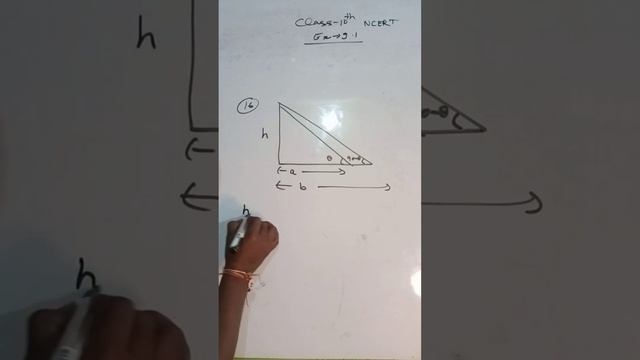 Class-10th NCERT
Ex→9.1
16
h
θ
90-θ
a
b
h